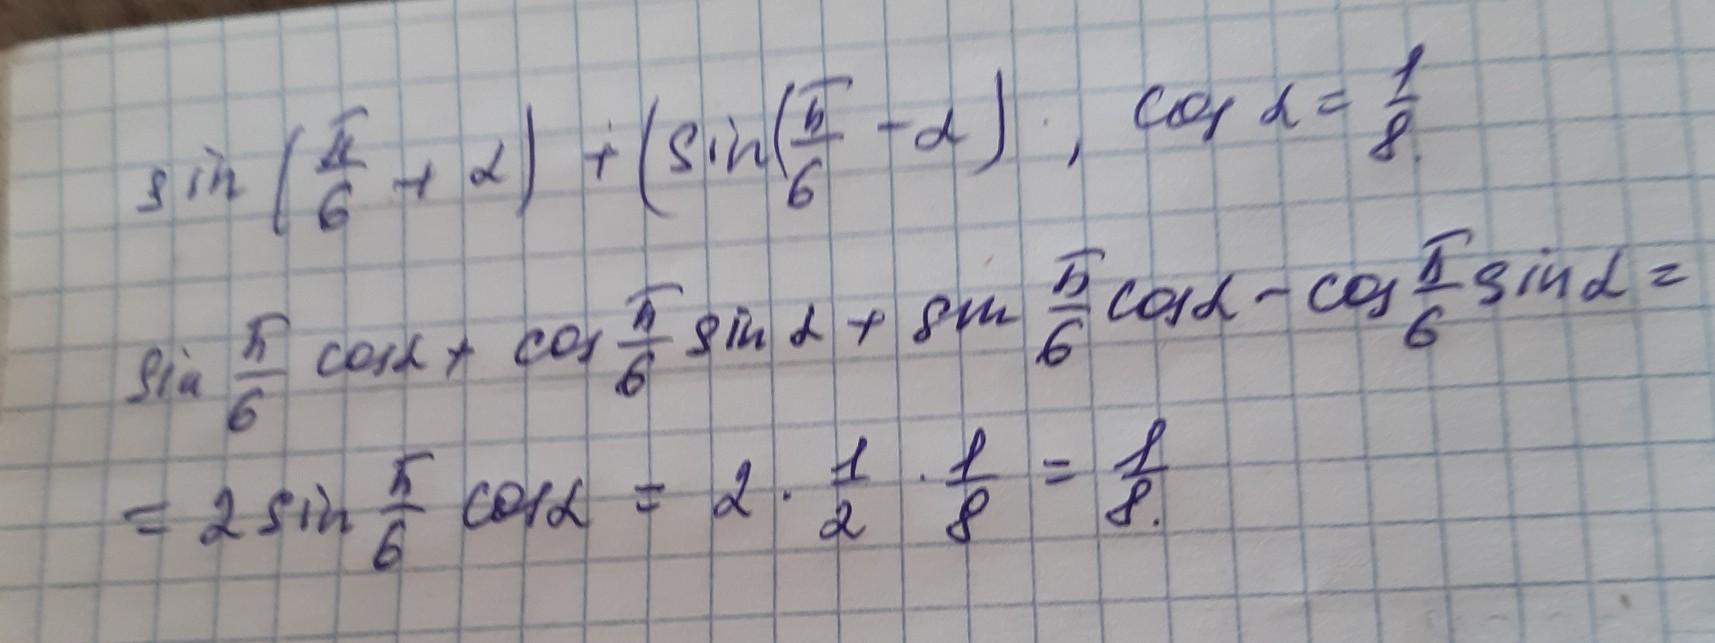 sin(π/6 + α) + (sin(π/6 - α), cos α = 1/8.
sin π/6 cosα + cos π/6 sin α + sin π/6 cosα - cos π/6 sin α =
= 2 sin π/6 cosα = 2 · 1/2 · 1/8 = 1/8.